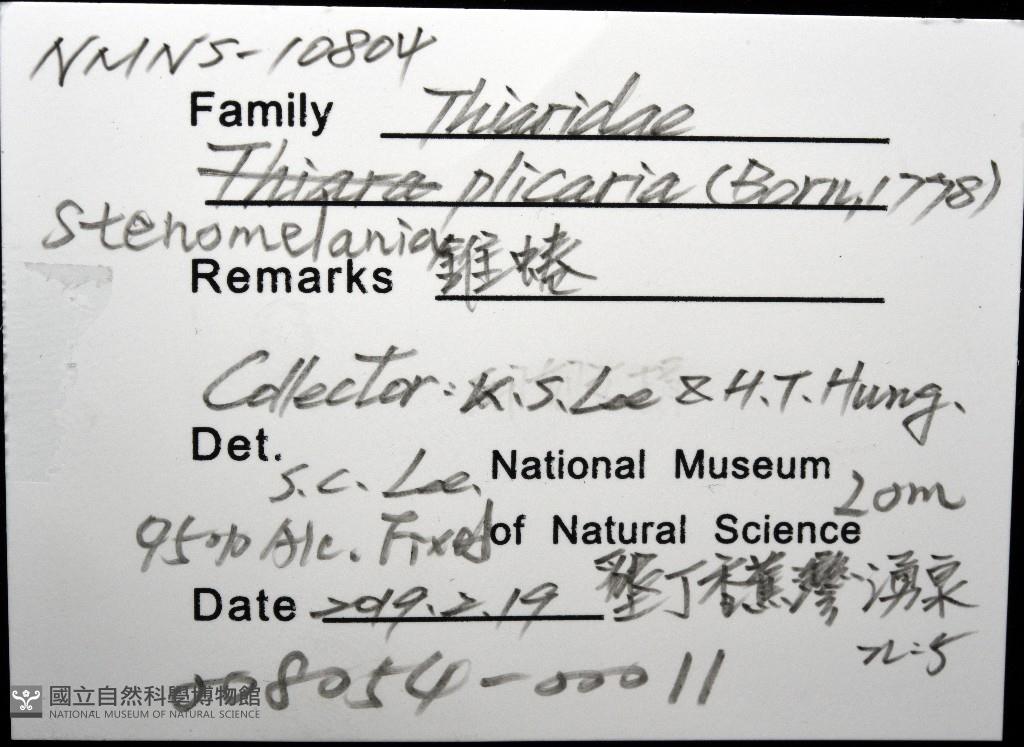 NMNS-10804
Family Thiaridae
Thiara plicaria (Born, 1778)
Stenomelania
Remarks 錐蜷
Collector: K.S. Lee & H.T. Hung.
Det. S.C. Lee. National Museum
20m
95% Alc. Fixed of Natural Science
Date 2019.2.19 墾丁香蕉灣湧泉
n=5
008054-00011
國立自然科學博物館
NATIONAL MUSEUM OF NATURAL SCIENCE